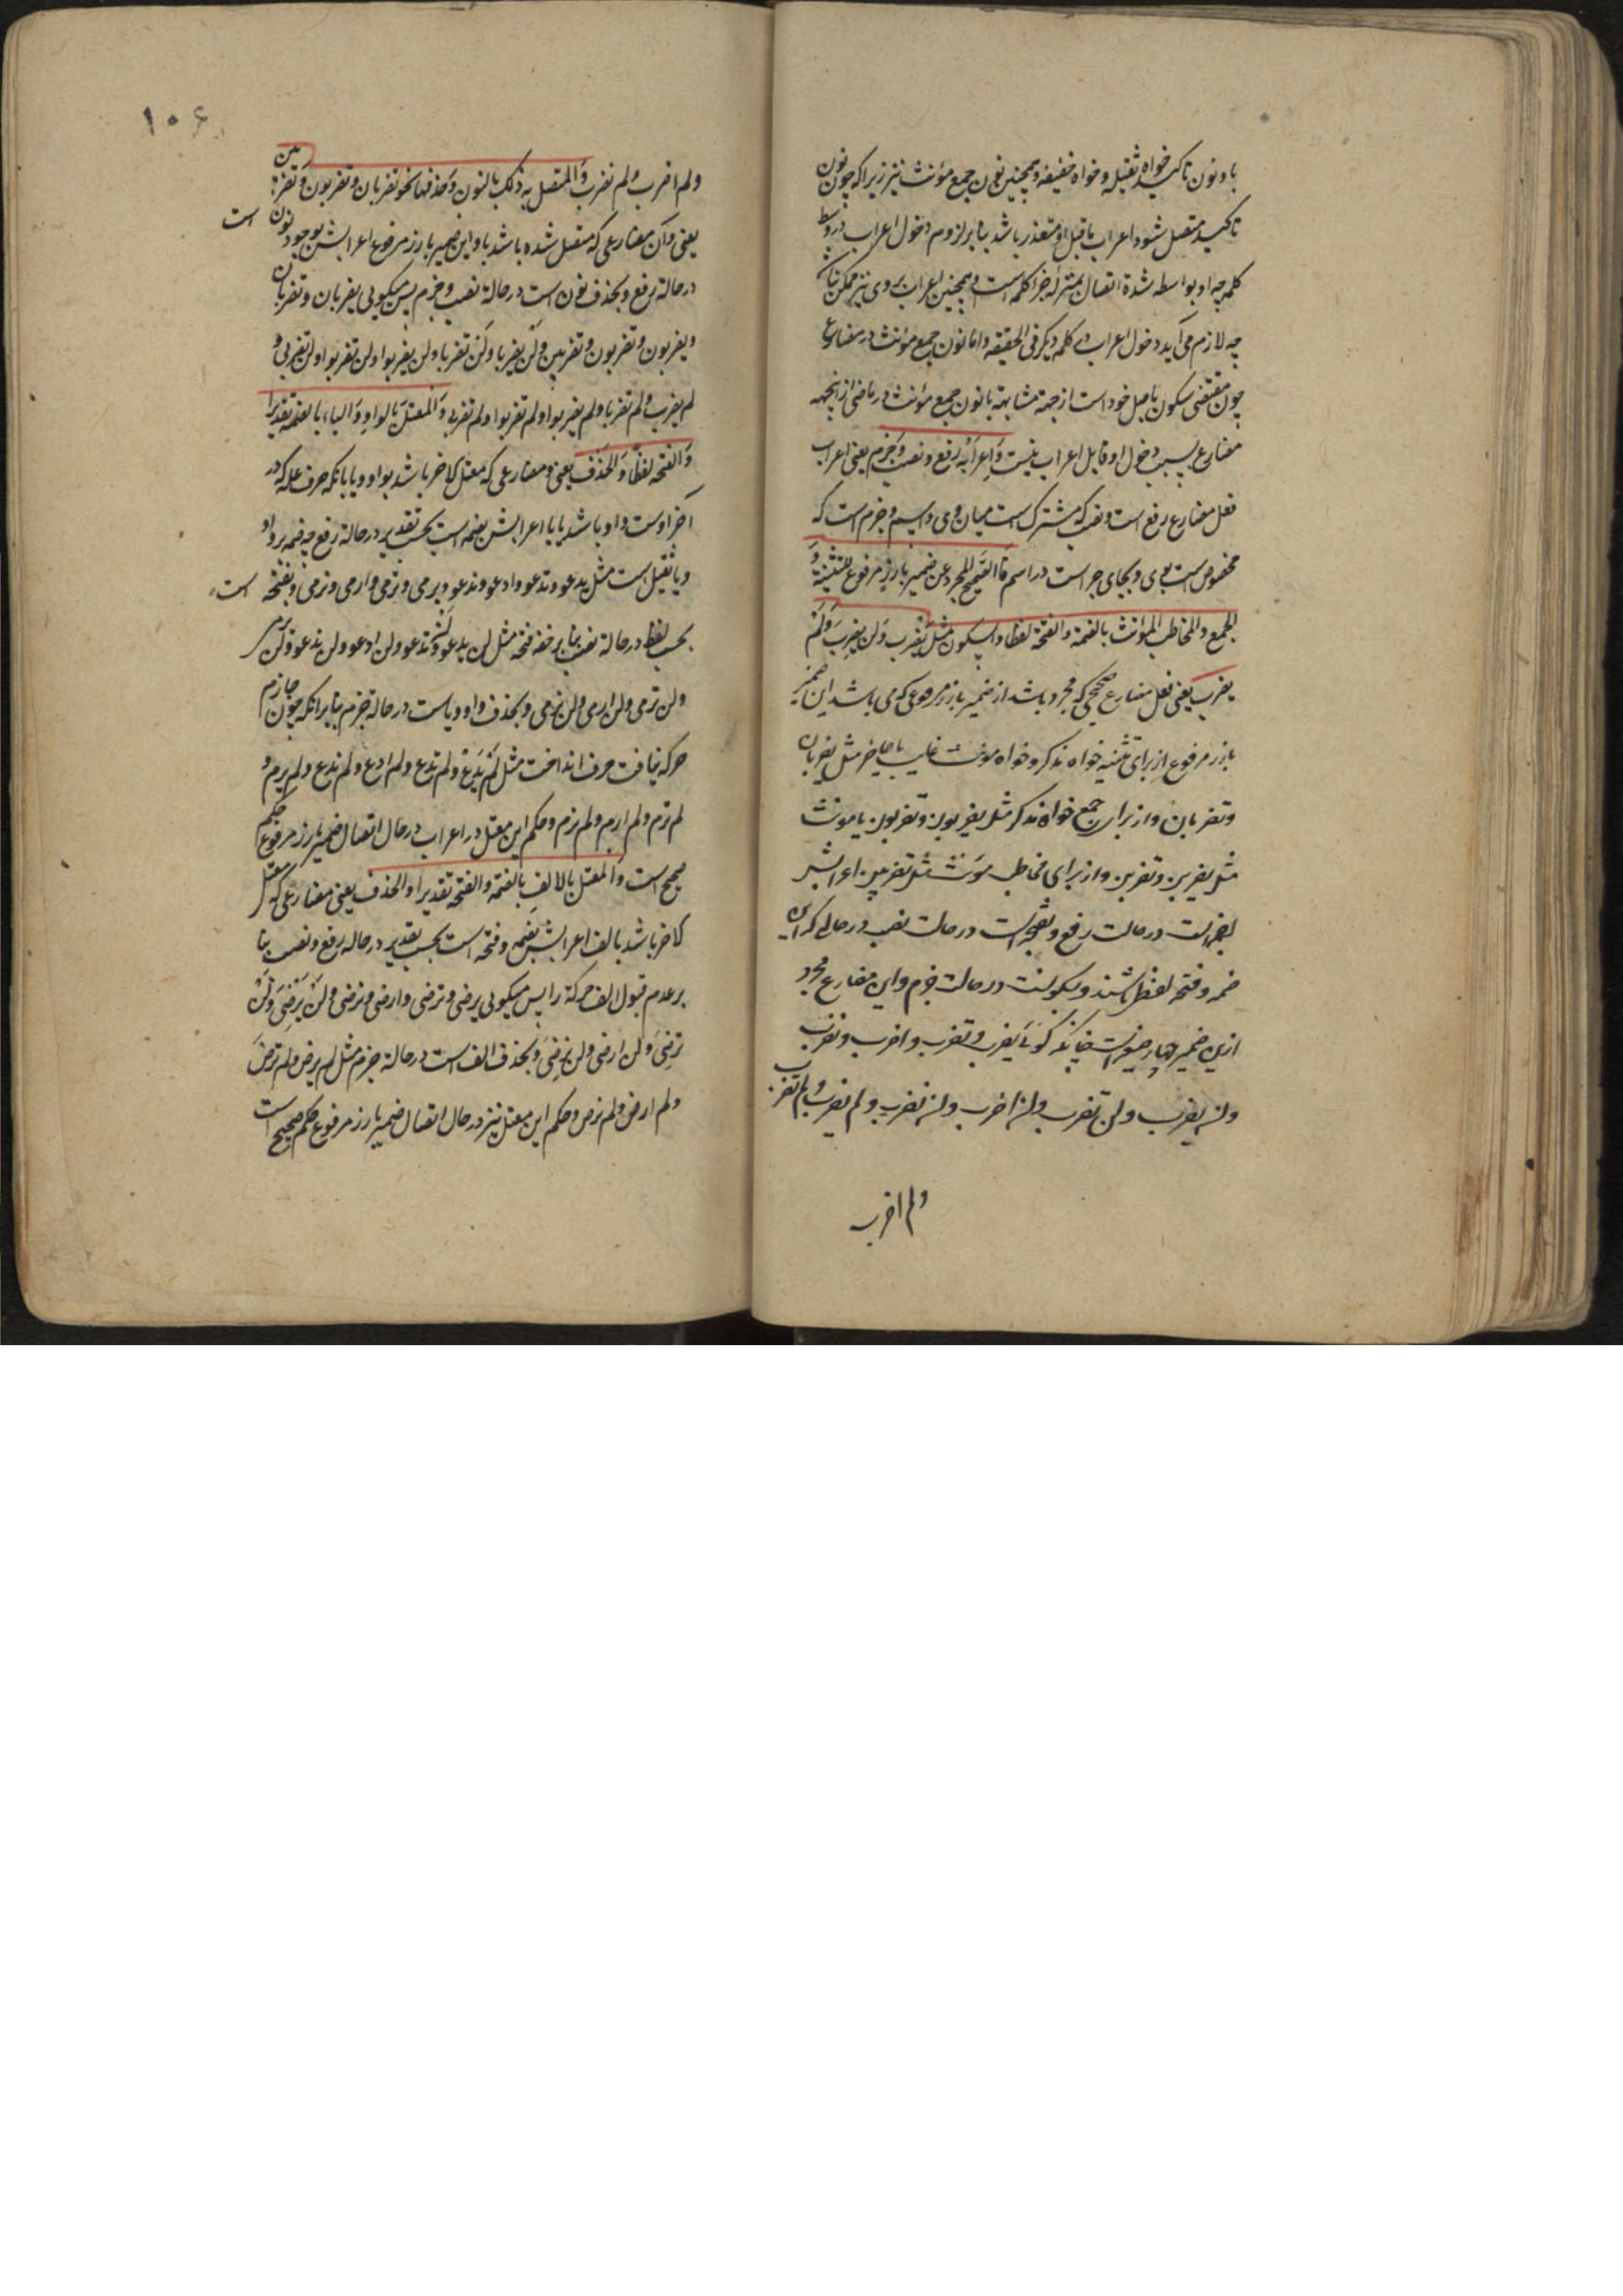 با و نون تاکید خواه ثقیله و خواه خفیفه و همچنین نون جمع مؤنث نیز زیرا که چون نون
تاکید متصل شود اعراب ماقبل او متعذر باشد بنابر لزوم دخول اعراب در وسط
کلمه چه او بواسطه شدة اتصال بمنزلهٔ جزا کلمه است و همچنین اعراب بر وی نیز ممکن
چه لازم می آید دخول اعراب بر کلمه دیگر فی الحقیقه و اما نون جمع مؤنث در مضارع
چون مقتضی سکون ماقبل خود است از جهة مشابهة با نون جمع مؤنث در ماضی از اینجهه
مضارع بسبب دخول او قابل اعراب نیست وَاِعرَابُه رفع و نصب و جزم یعنی اعراب
فعل مضارع رفع است و نصب که مشترک است میان وی و اسم و جزم است که
مخصوص است بوی و بجای جر است در اسم فاالصَّحیح المجرد عن ضمیر بارز مرفوع للتثنیة وَ
الجمع و المخاطب المؤنث بالضمة و الفتحة لفظا و السکون مثل یَضْرِب وَ لن یضربَ وَ لَم
یضرب یعنی فعل مضارع صحیحی که مجرد باشد از ضمیر بارز مرفوعی که می باشد این ضمیر
بارز مرفوع از برای تثنیه خواه مذکر و خواه مونث غایب یا حاضر مثل یضربان
و تضربان و از برای جمع خواه مذکر مثل یضربون و تضربون یا مونث
مثل یضربن و تضربن و از برای مخاطبه مؤنث مثل تضربین اعرابش
بضمه است در حالت رفع و بفتحه است در حالت نصب در حالی که این
ضمه و فتحه لفظی باشند و بسکونست در حالت جزم و این مضارع مجرد
ازین ضمیر چهار صیغه است چنانکه گوئی یضرب و تضرب و اضرب و نضرب
و لن یضرب و لن تضرب و لن اضرب و لن نضرب و لم یضرب و لم تضرب
و لم اضرب
۱۰۶
و لم اضرب و لم نضرب وَالمتصل به ذلک بالنون وَ حذفها نحو تضربان و تضربون وَ تضربین
یعنی و آن مضارعی که متصل شده باشد باو این ضمیر بارز مرفوع اعرابش بوجود نون است
در حالة رفع و بحذف نون است در حالة نصب و جزم پس میگویی یضربان و تضربان
و یضربون و تضربون و تضربین وَ لن یضربا و لن تضربا و لن یضربوا و لن تضربوا و لن تضربی و
لم یضربا و لم تضربا و لم یضربوا و لم تضربوا و لم تضربی وَ المعتل بالواو وَ الیاء بالضمة تقدیرا
وَ الفتحة لفظا وَ الحذف یعنی و مضارعی که معتل لاخر باشد بواو و یا یا بانکه حرف عله که در
آخر اوست واو باشد یا یا اعرابش بضمه است بحسب تقدیر در حالة رفع چه ضمه بر واو
و یا ثقیل است مثل یدعو و تدعو و ادعو و ندعو و یرمی و ترمی و ارمی و نرمی و بفتحه است
بحسب لفظ در حالة نصب بنابر خفة فتحه مثل لن یدعو و لن تدعو و لن ادعو و لن ندعو و لن یرمی
و لن ترمی و لن ارمی و لن نرمی و بحذف واو و یاست در حالة جزم بنابر انکه چون جازم
حرکه نیافت حرف انداخت مثل لَم یَدعُ و لم تدع و لم ادع و لم ندع و لم یرم و
لم ترم و لم ارم و لم نرم و حکم این معتل در اعراب در حال اتصال ضمیر بارز مرفوع حکم
صحیح است وَ المعتل بالالف بالضمة و الفتحة تقدیرا و الحذف یعنی مضارعی که معتل
لاخر باشد بالف اعرابش بضمه و فتحه است بحسب تقدیر در حالة رفع و نصب بنا
بر عدم قبول الف حرکة را پس میگویی یرضی و ترضی و ارضی و نرضی وَ لَن یَرضیَ وَ لَن
ترضیَ و لن ارضی و لن نرضیَ و بحذف الف است در حالة جزم مثل لم یرض و لم ترضَ
و لم ارض و لم نرض و حکم این معتل نیز در حال اتصال ضمیر بارز مرفوع حکم صحیح است